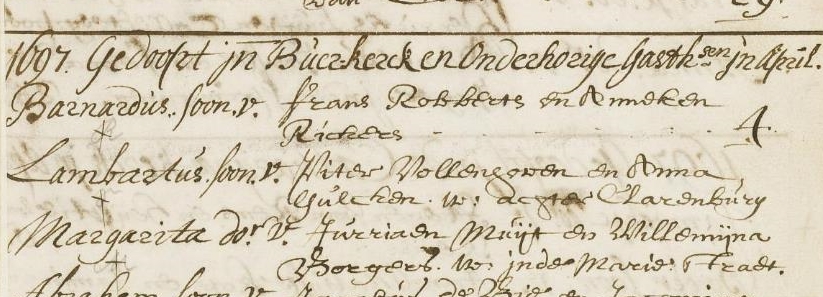 van
29.
1697. Gedoopt jn Buer-kerck en Onderhorige Gasth:sen jn April.
Barnardus. soon. v. Frans Robberts en Anneken
Rickers 4.
Lambartus. soon. v. Piter Vollenhoven en Anna
Gulcken. w: achter Clarenburg
Margarita do.r v. Jurriaen Muijt en Willemijna
Borgers. w: jnde Marie: Straet.
Abraham soon. v. de en